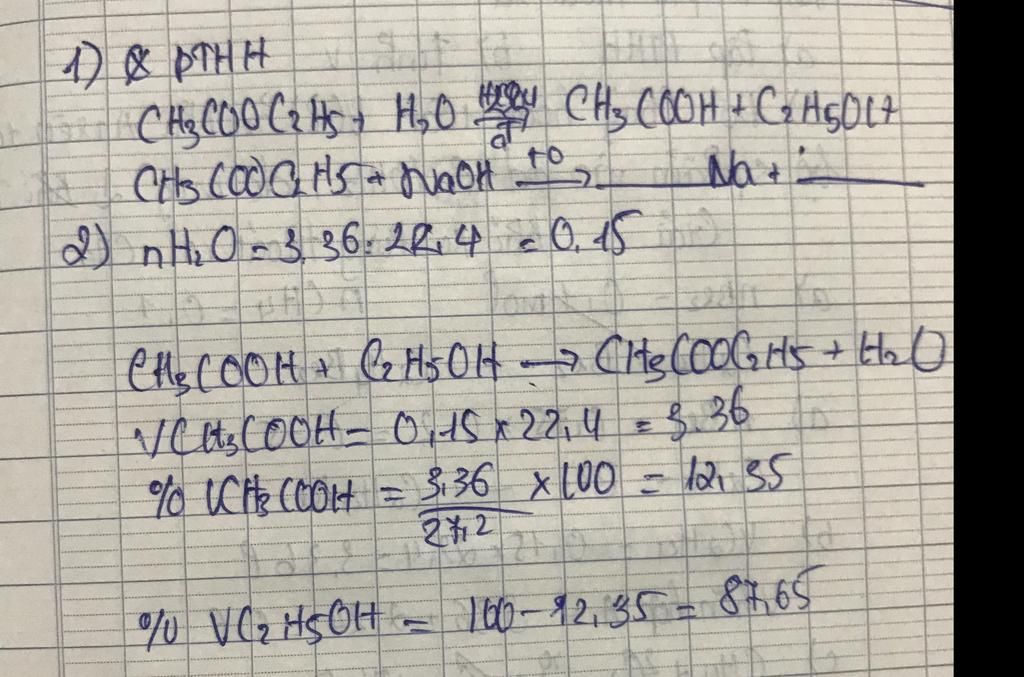 1) PTHH
CH3COOC2H5 + H2O CH3COOH + C2H5OH
CH3COOC2H5 + NaOH t0 → ____ Na + ____
2) nH2O = 3,36 : 22,4 = 0,15
CH3COOH + C2H5OH → CH3COOC2H5 + H2O
VCH3COOH = 0,15 x 22,4 = 3.36
% VCH3COOH = 3,36 / 27,2 x 100 = 12,35
% VC2H5OH = 100 - 12,35 = 87,65